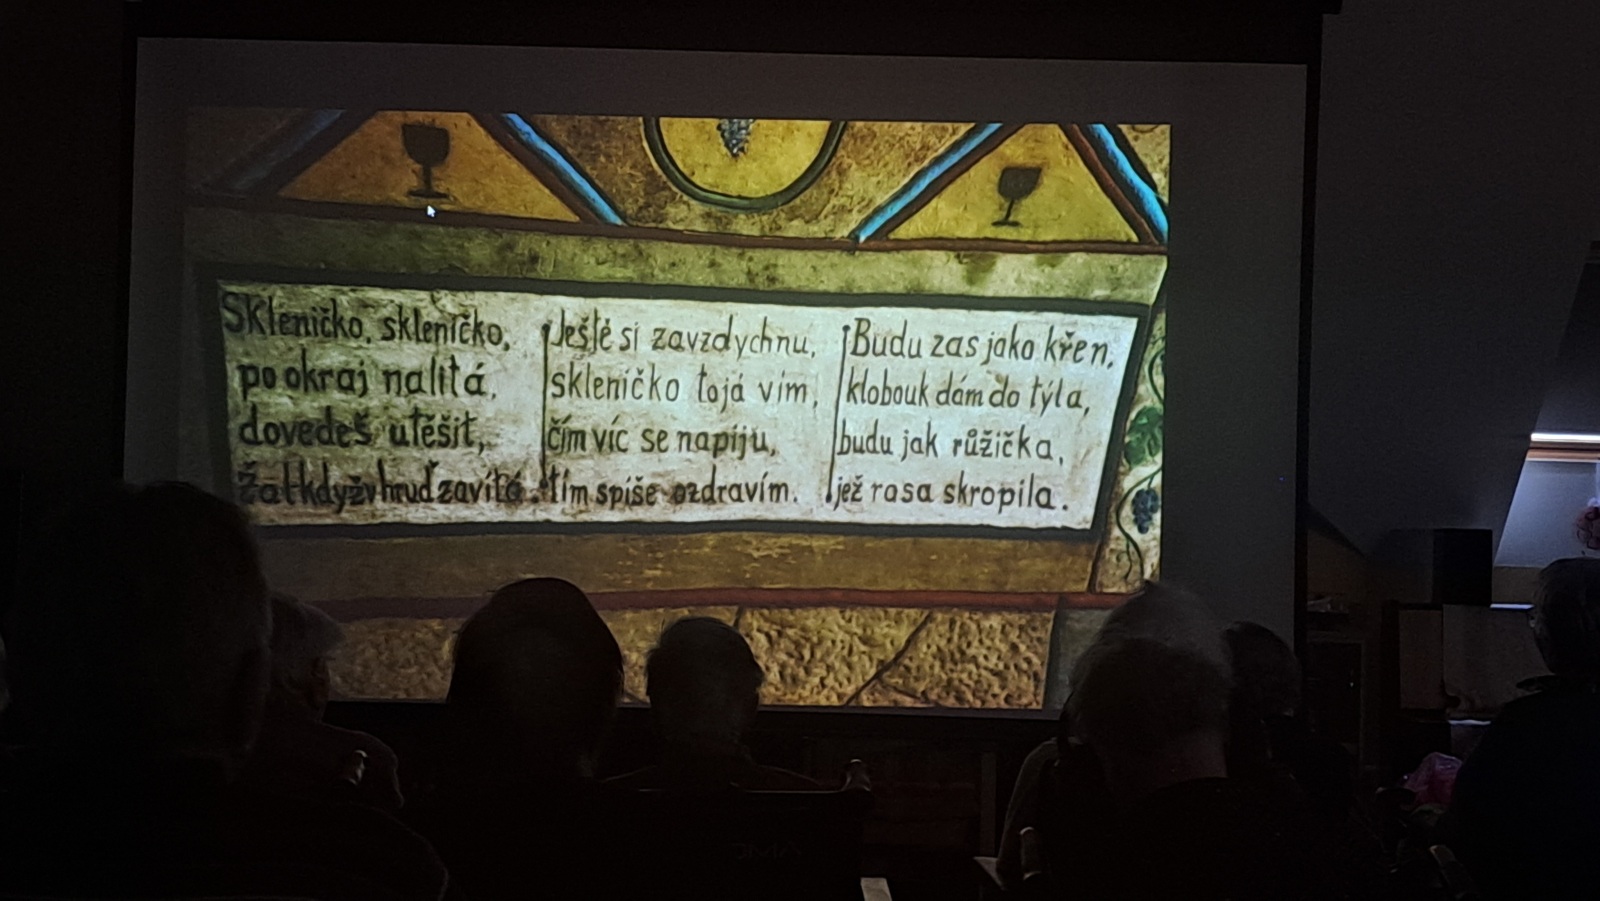 Skleničko, skleničko,
po okraj nalitá,
dovedeš utěšit,
žal když v hruď zavítá.
Ještě si zavzdychnu,
skleničko to já vím,
čím víc se napiju,
tím spíše ozdravím.
Budu zas jako křen,
klobouk dám do týla,
budu jak růžička,
jež rosa skropila.